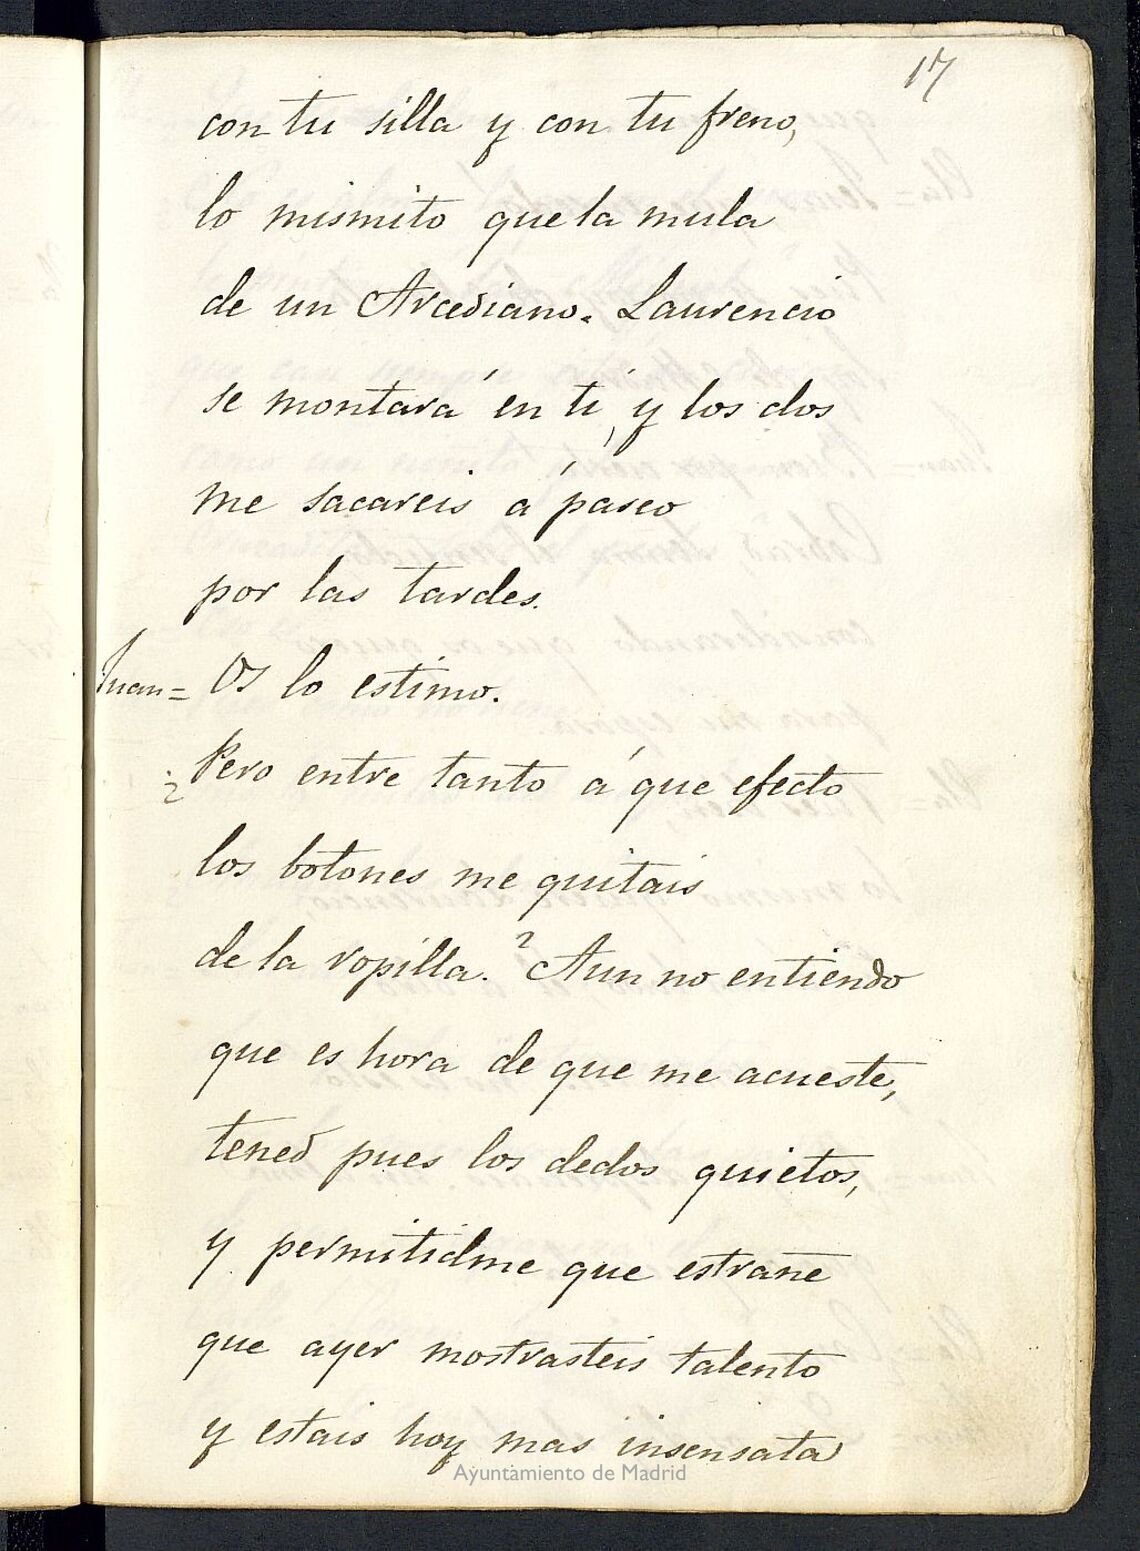 17
con tu silla y con tu freno,
lo mismito que la mula
de un Arcediano. Laurencio
se montará en ti, y los dos
me sacareis á paseo
por las tardes.
Juan= Os lo estimo.
¿Pero entre tanto á que efecto
los botones me quitais
de la ropilla.? Aun no entiendo
que es hora de que me acueste,
tened pues los dedos quietos,
y permitidme que estrañe
que ayer mostrasteis talento
y estais hoy mas insensata
Ayuntamiento de Madrid